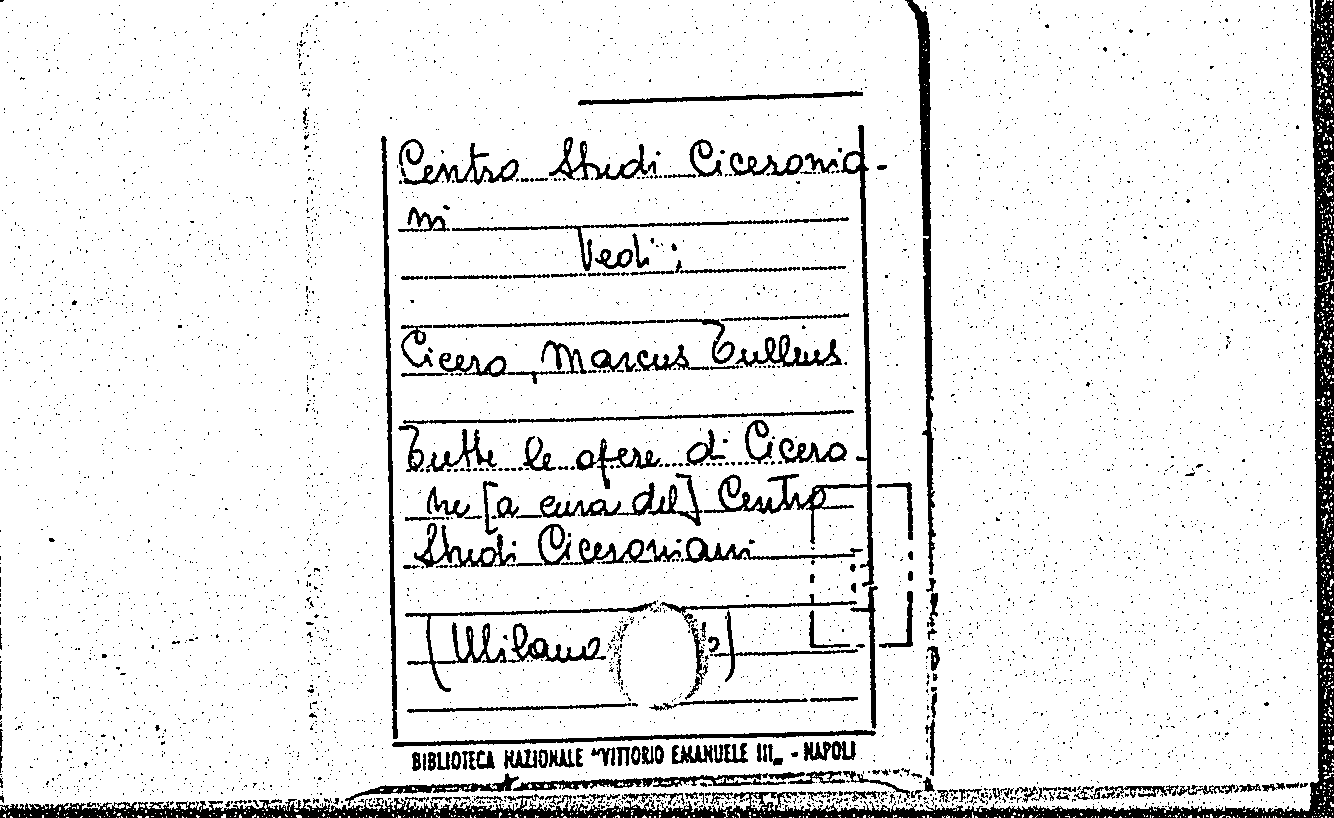 Centro Studi Ciceronia-
ni
Vedi:
Cicero, Marcus Tullius
Tutte le opere di Cicero-
ne [a cura del] Centro
Studi Ciceroniani
(Milano )
BIBLIOTECA NAZIONALE "VITTORIO EMANUELE III„ - NAPOLI